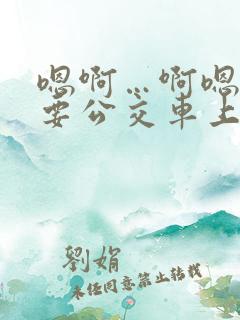 嗯啊…啊嗯
要公交车上
劉娟
未经同意禁止转载